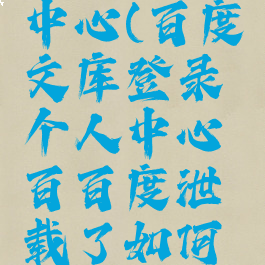 中心(百度
文库登录
个人中心
百百度泄
载了如何